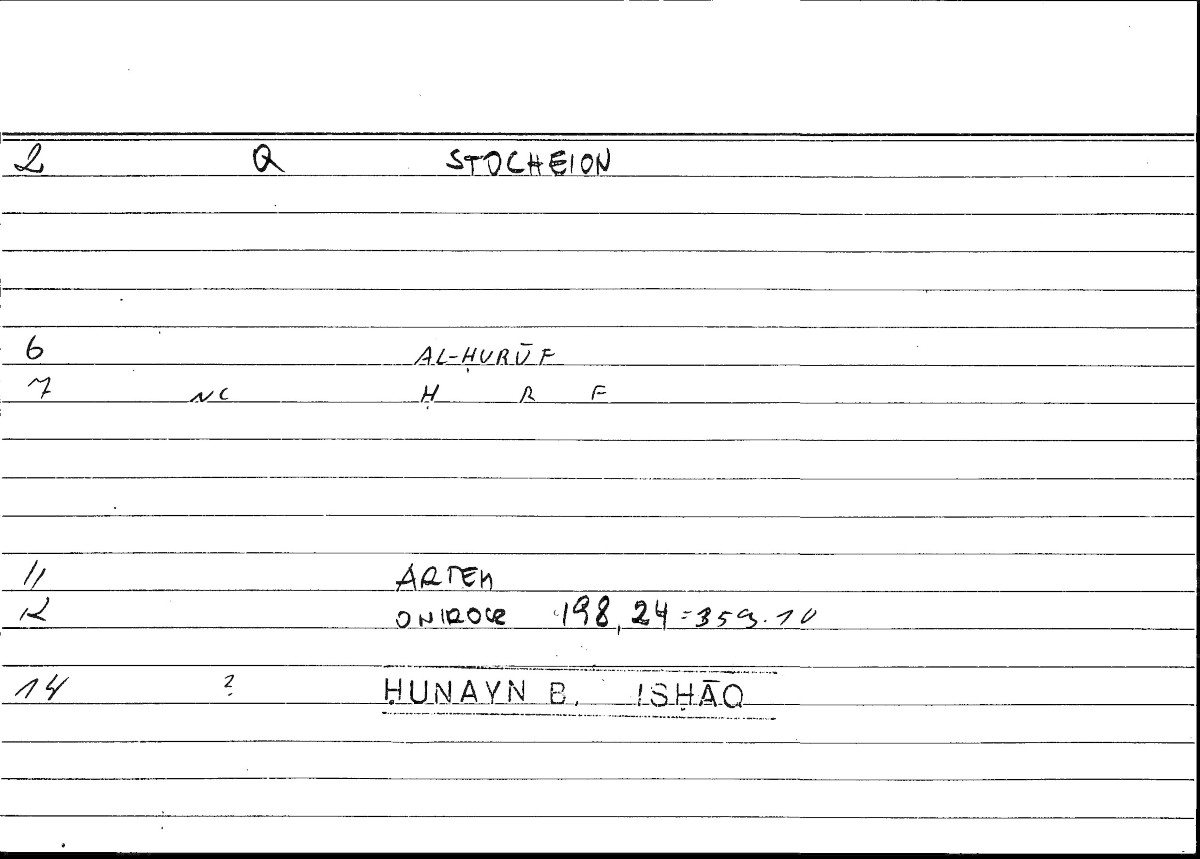 2 Q STOCHEION
6 AL-ḤURŪF
7 NC Ḥ R F
11 ARTEM
12 ONIROCR 198,24=359.10
14 ? ḤUNAYN B. ISḤĀQ